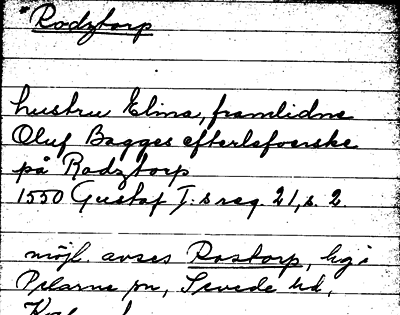 "Rodztorp
hustru Elina, framlidne
Oluf Bagges efterlefverske
på Rodztorp
1550 Gustaf I. s reg. 21, s. 2
möjl. avses Rostorp, hgi
Pelarne sn, Sevede hd,